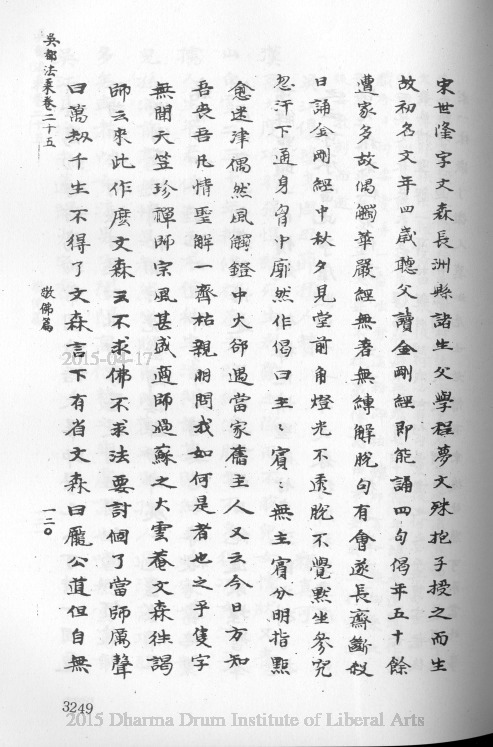 宋世隆字文森長洲縣諸生父學程夢文殊抱子授之而生
故初名文年四歲聽父讀金剛經即能誦四句偈年五十餘
遭家多故偶觸華嚴經無著無縛解脫句有會遂長齋斷
日誦金剛經中秋夕見堂前角燈光不透脫不覺默坐參究
忽汗下通身胷中廓然作偈曰主〻賓〻無主賓分明指點
愈迷津偶然風觸鐙中火卻遇當家舊主人又云今日方知
吾喪吾凡情聖解一齊枯親朋問我如何是者也之乎隻字
無聞天笠珍禪師宗風甚盛適師過蘇之大雲菴文森往謁
師云來此作麽文森云不求佛不求法要討個了當師厲聲
曰萬劫千生不得了文森言下有省文森曰龐公道但自無
吳都法乘卷二十五
敬佛篇
一二〇
3249
2015-04-17
2015 Dharma Drum Institute of Liberal Arts